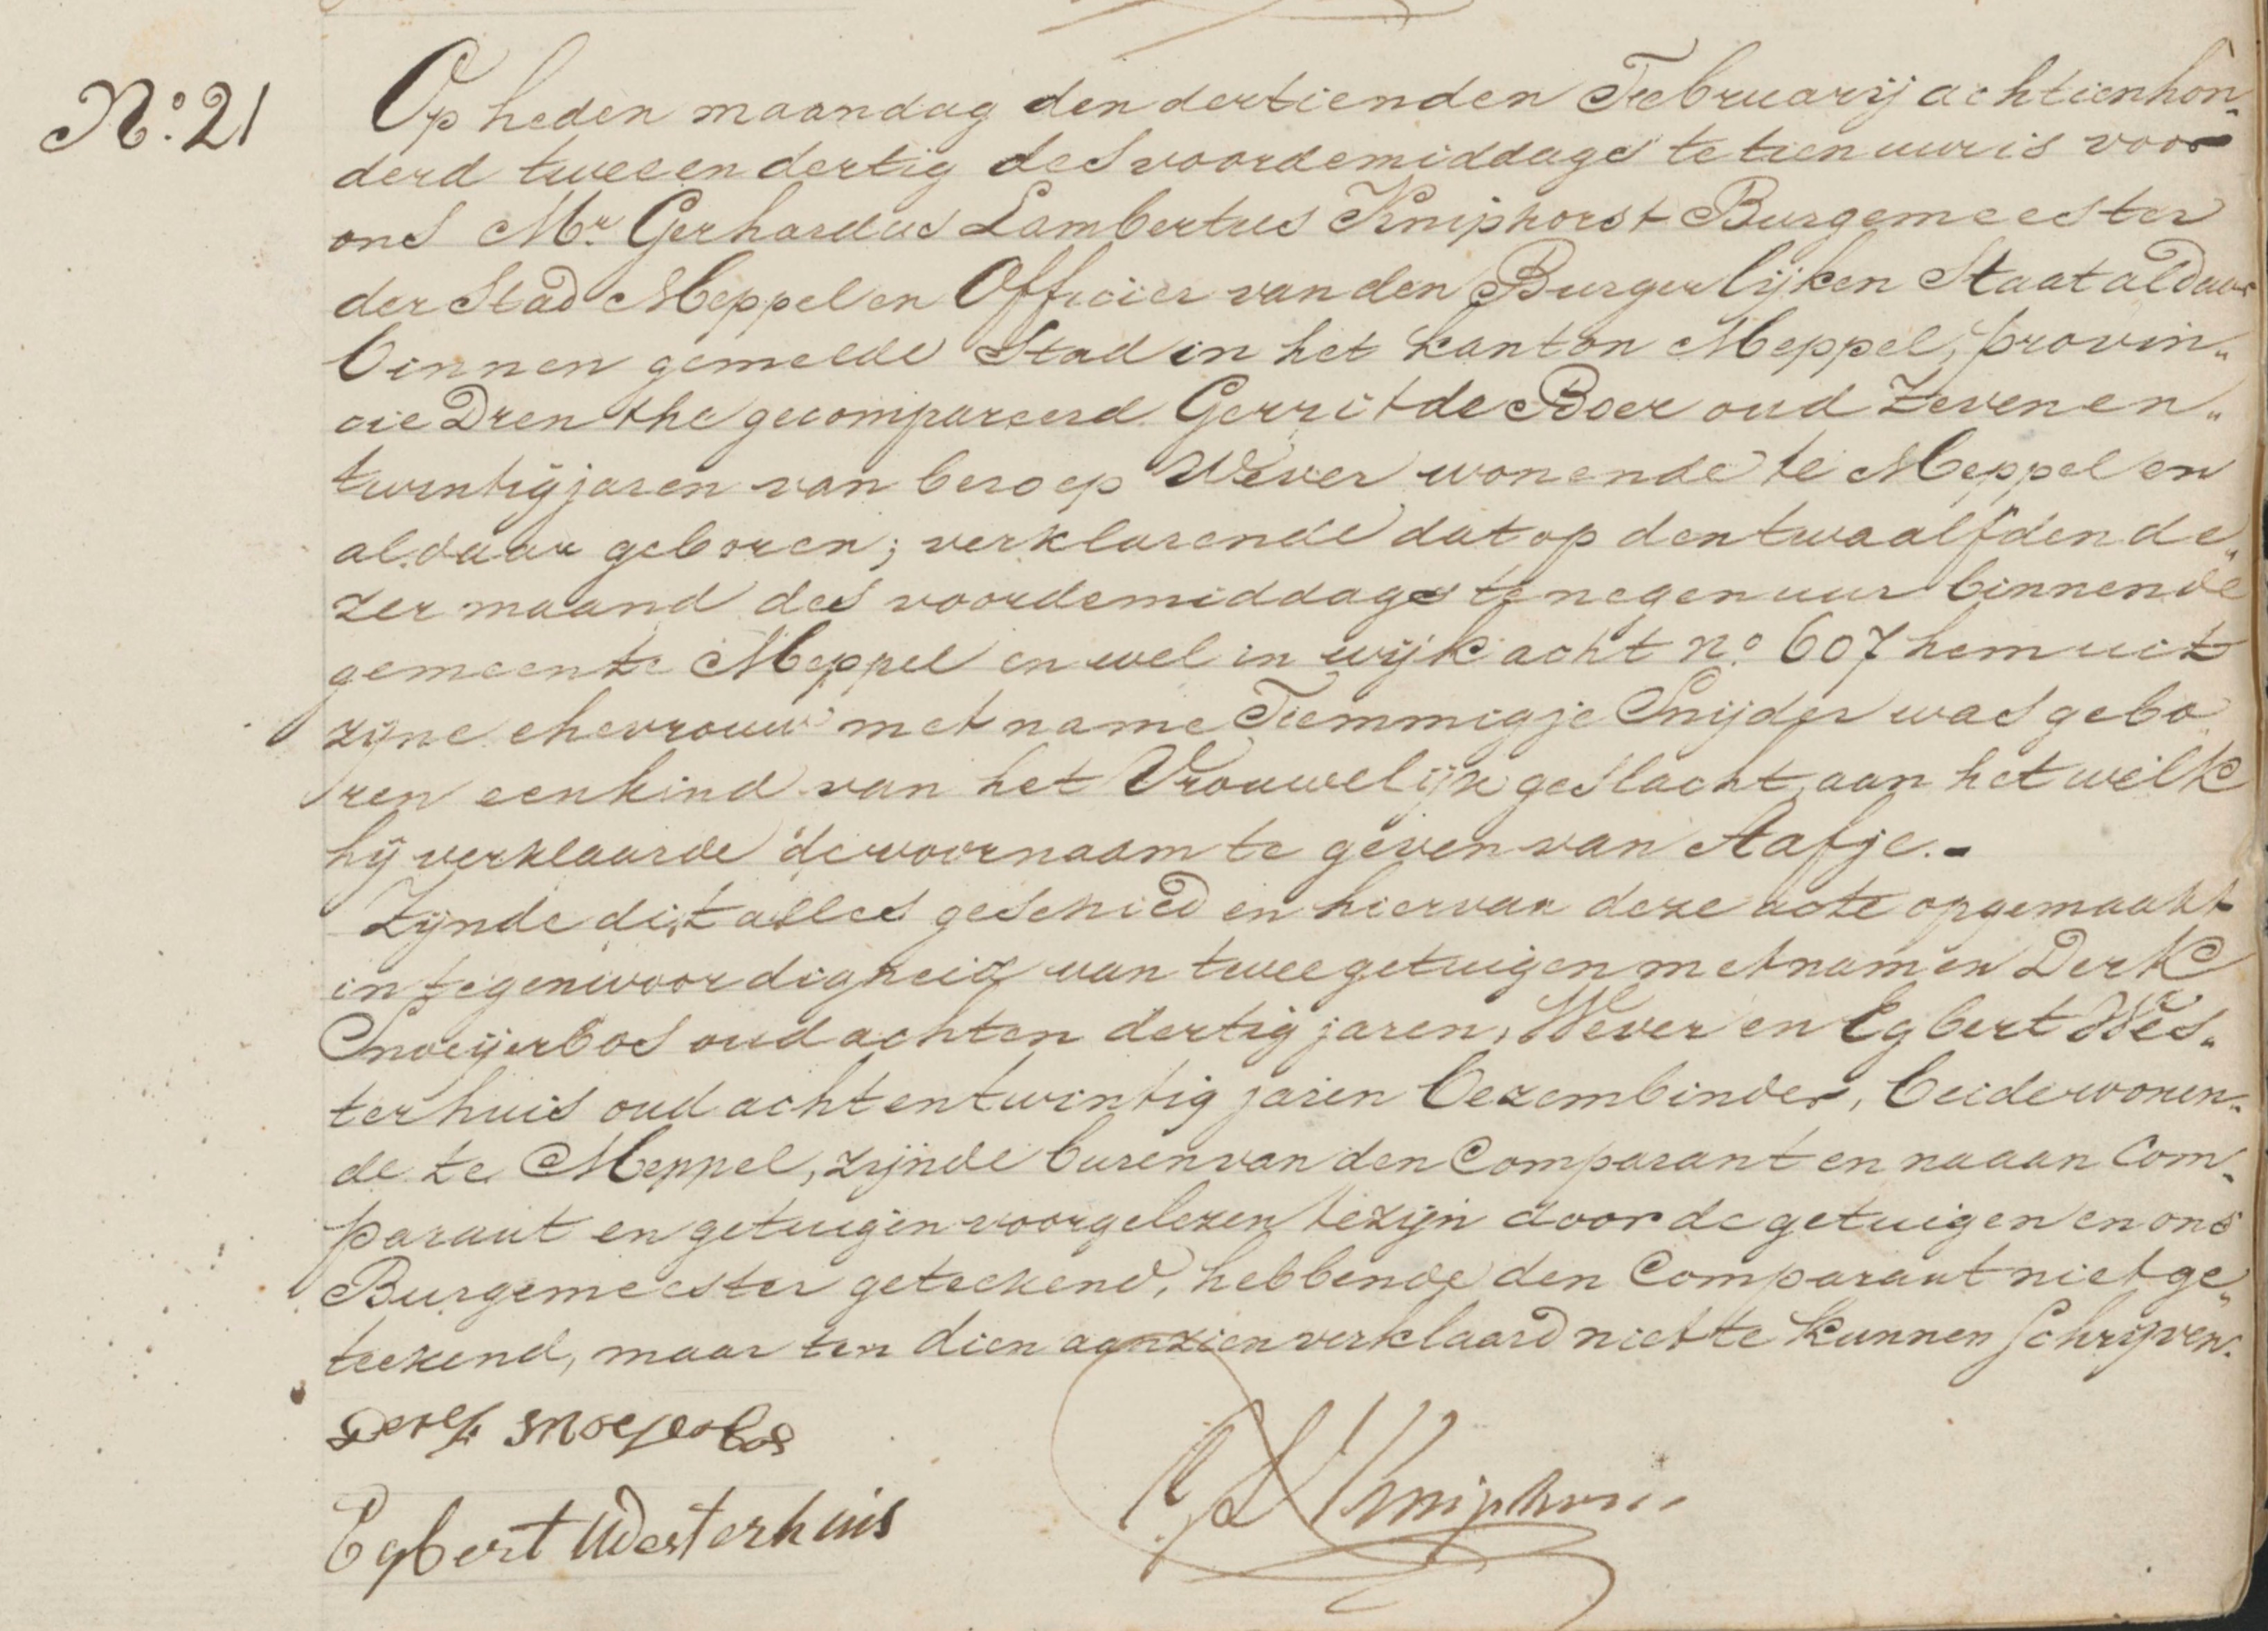 N.o 21
Op heden maandag den dertienden Februarij achtienhon„
derd tweeendertig des voordemiddags te tien uur is voor
ons Mr. Gerhardus Lambertus Kniphorst Burgemeester
der Stad Meppel en Officier van den Burgerlijken Staat aldaar
binnen gemelde Stad in het kanton Meppel, provin„
cie Drenthe gecompareerd Gerrit de Boer oud Zevenen„
twintig jaren van beroep Wever wonende te Meppel en
aldaar geboren; verklarende dat op den twaalfden de„
zer maand des voordemiddags te negen uur binnen de
gemeente Meppel en wel in wijk acht no. 607 hem uit
zijne ehevrouw met name Femmigje Snijder was gebo„
ren een kind van het Vrouwelijk geslacht, aan het welk
hij verklaarde de voornaam te geven van Aafje.-
Zijnde dit alles geschied en hiervan deze acte opgemaakt
in tegenwoordigheid van twee getuigen met namen Derk
Snoeijerbos oud achten dertig jaren, Wever en Egbert Wes„
terhuis oud achtentwintig jaren bezembinder, beide wonen„
de te Meppel, zijnde buren van den Comparant en na aan Com„
parant en getuigen voorgelezen te zijn door de getuigen en ons
Burgemeester geteekend, hebbende den Comparant niet ge„
teekend, maar ten dien aanzien verklaard niet te kunnen schrijven.
Derk snoeyerbos
Egbert Westerhuis
GL Kniphorst